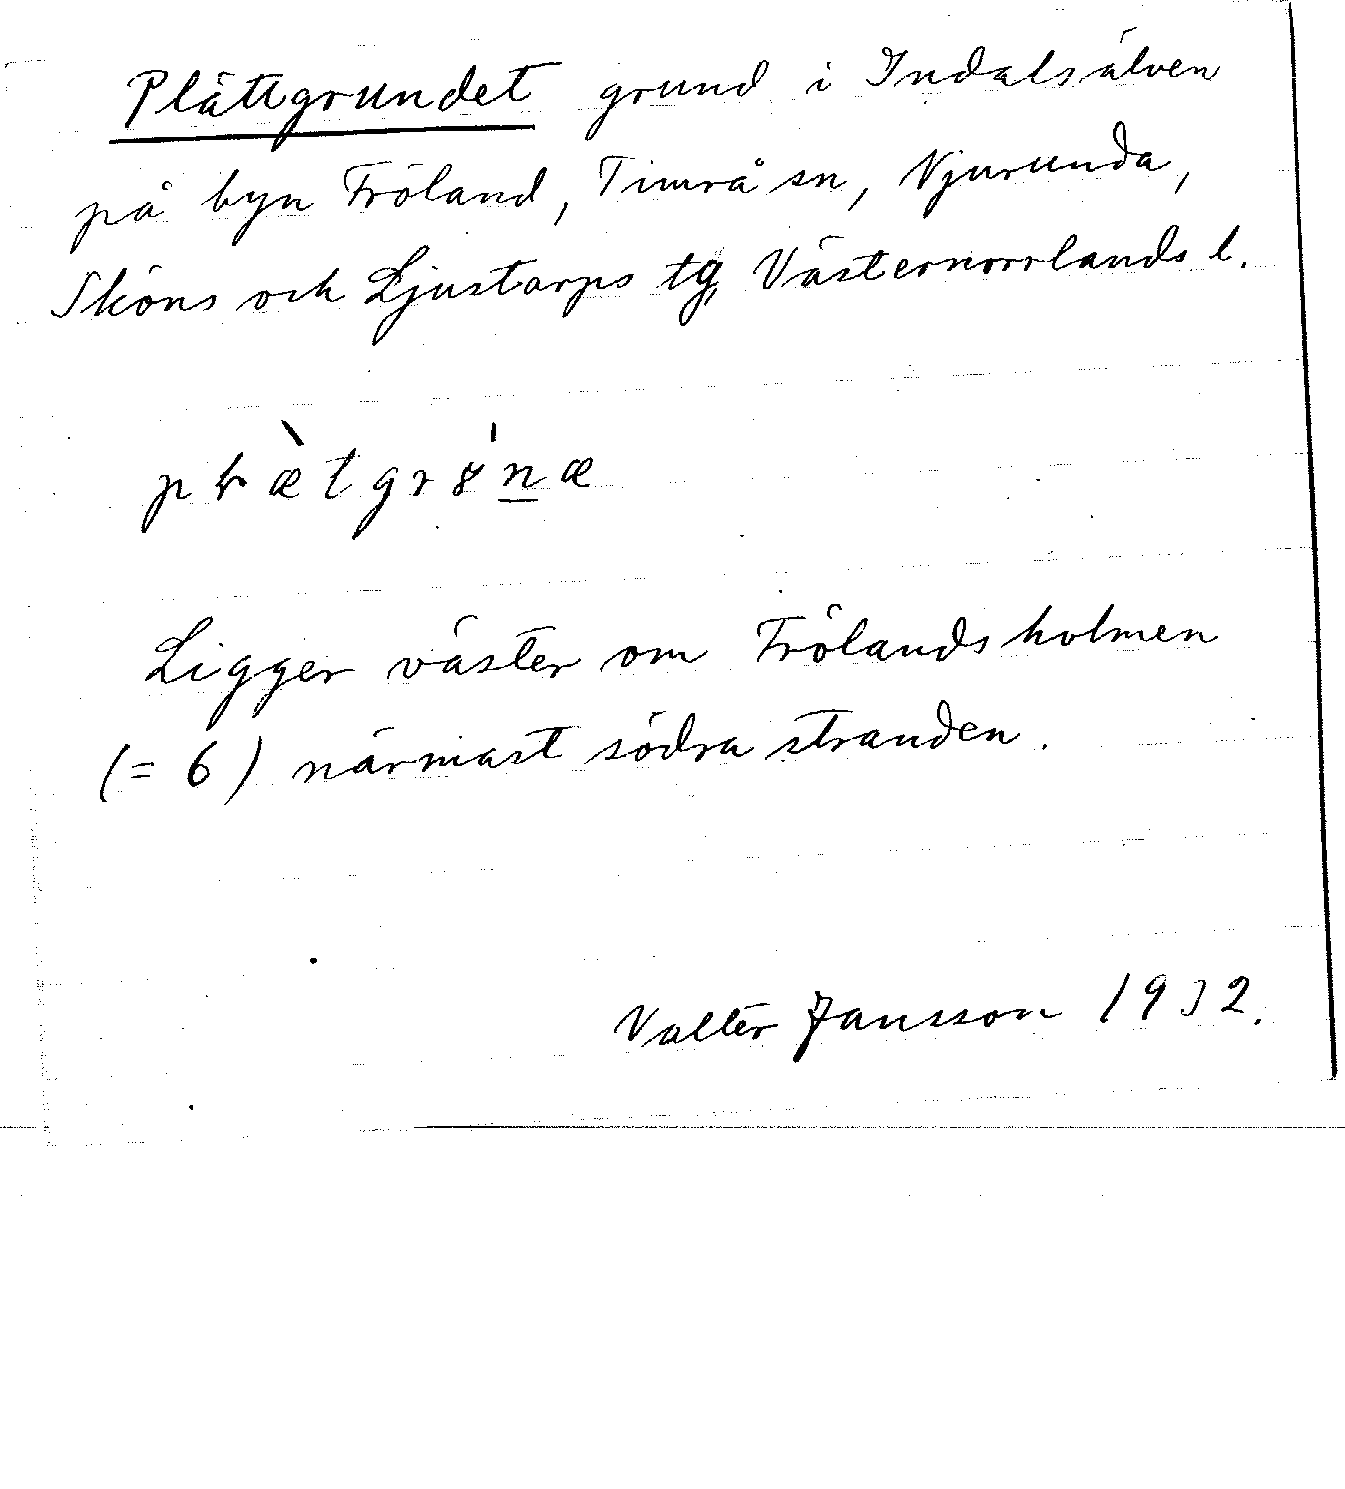 Plättgrundet grund i Indalsälven
på byn Fröland, Timrå sn, Njurunda,
Sköns och Ljustorps tg, Västernorrlands l.
Ligger väster om Frölandsholmen
(= 6) närmast södra stranden.
Valter Jansson 1932.